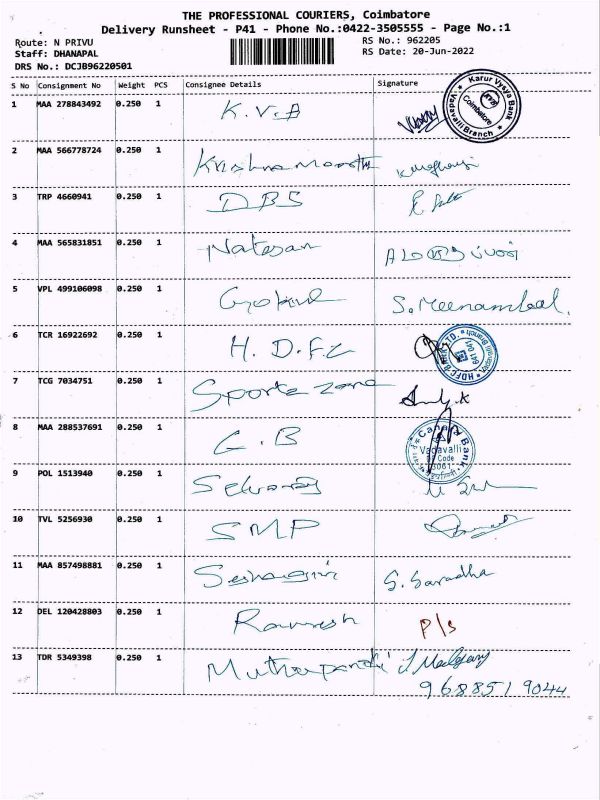 THE PROFESSIONAL COURIERS, Coimbatore
Delivery Runsheet - P41 - Phone No.:0422-3505555 - Page No.:1
Route: N PRIVU RS No.: 962205
Staff: DHANAPAL RS Date: 20-Jun-2022
DRS No.: DCJB96220501
S No Consignment No Weight PCS Consignee Details Signature
1 MAA 278843492 0.250 1 K.V.B
Karur Vysya Bank
KVB
Coimbatore
Vadavalli Branch
2 MAA 566778724 0.250 1
3 TRP 4660941 0.250 1 DBS
4 MAA 565831851 0.250 1 Natesan
5 VPL 499106098 0.250 1 Gokul S. Meenambal.
6 TCR 16922692 0.250 1 H.D.F.C
HDFC BANK LTD.
Vadavalli Branch
641 041
7 TCG 7034751 0.250 1 Sports zone
8 MAA 288537691 0.250 1 C.B
Canara Bank
Vadavalli
Code
9 POL 1513940 0.250 1 Selvaraj
10 TVL 5256930 0.250 1 SMP
11 MAA 857498881 0.250 1 Seshagiri S. Saradha
12 DEL 120428803 0.250 1 Ramesh P/s
13 TDR 5349398 0.250 1 Muthupandi
9688519044